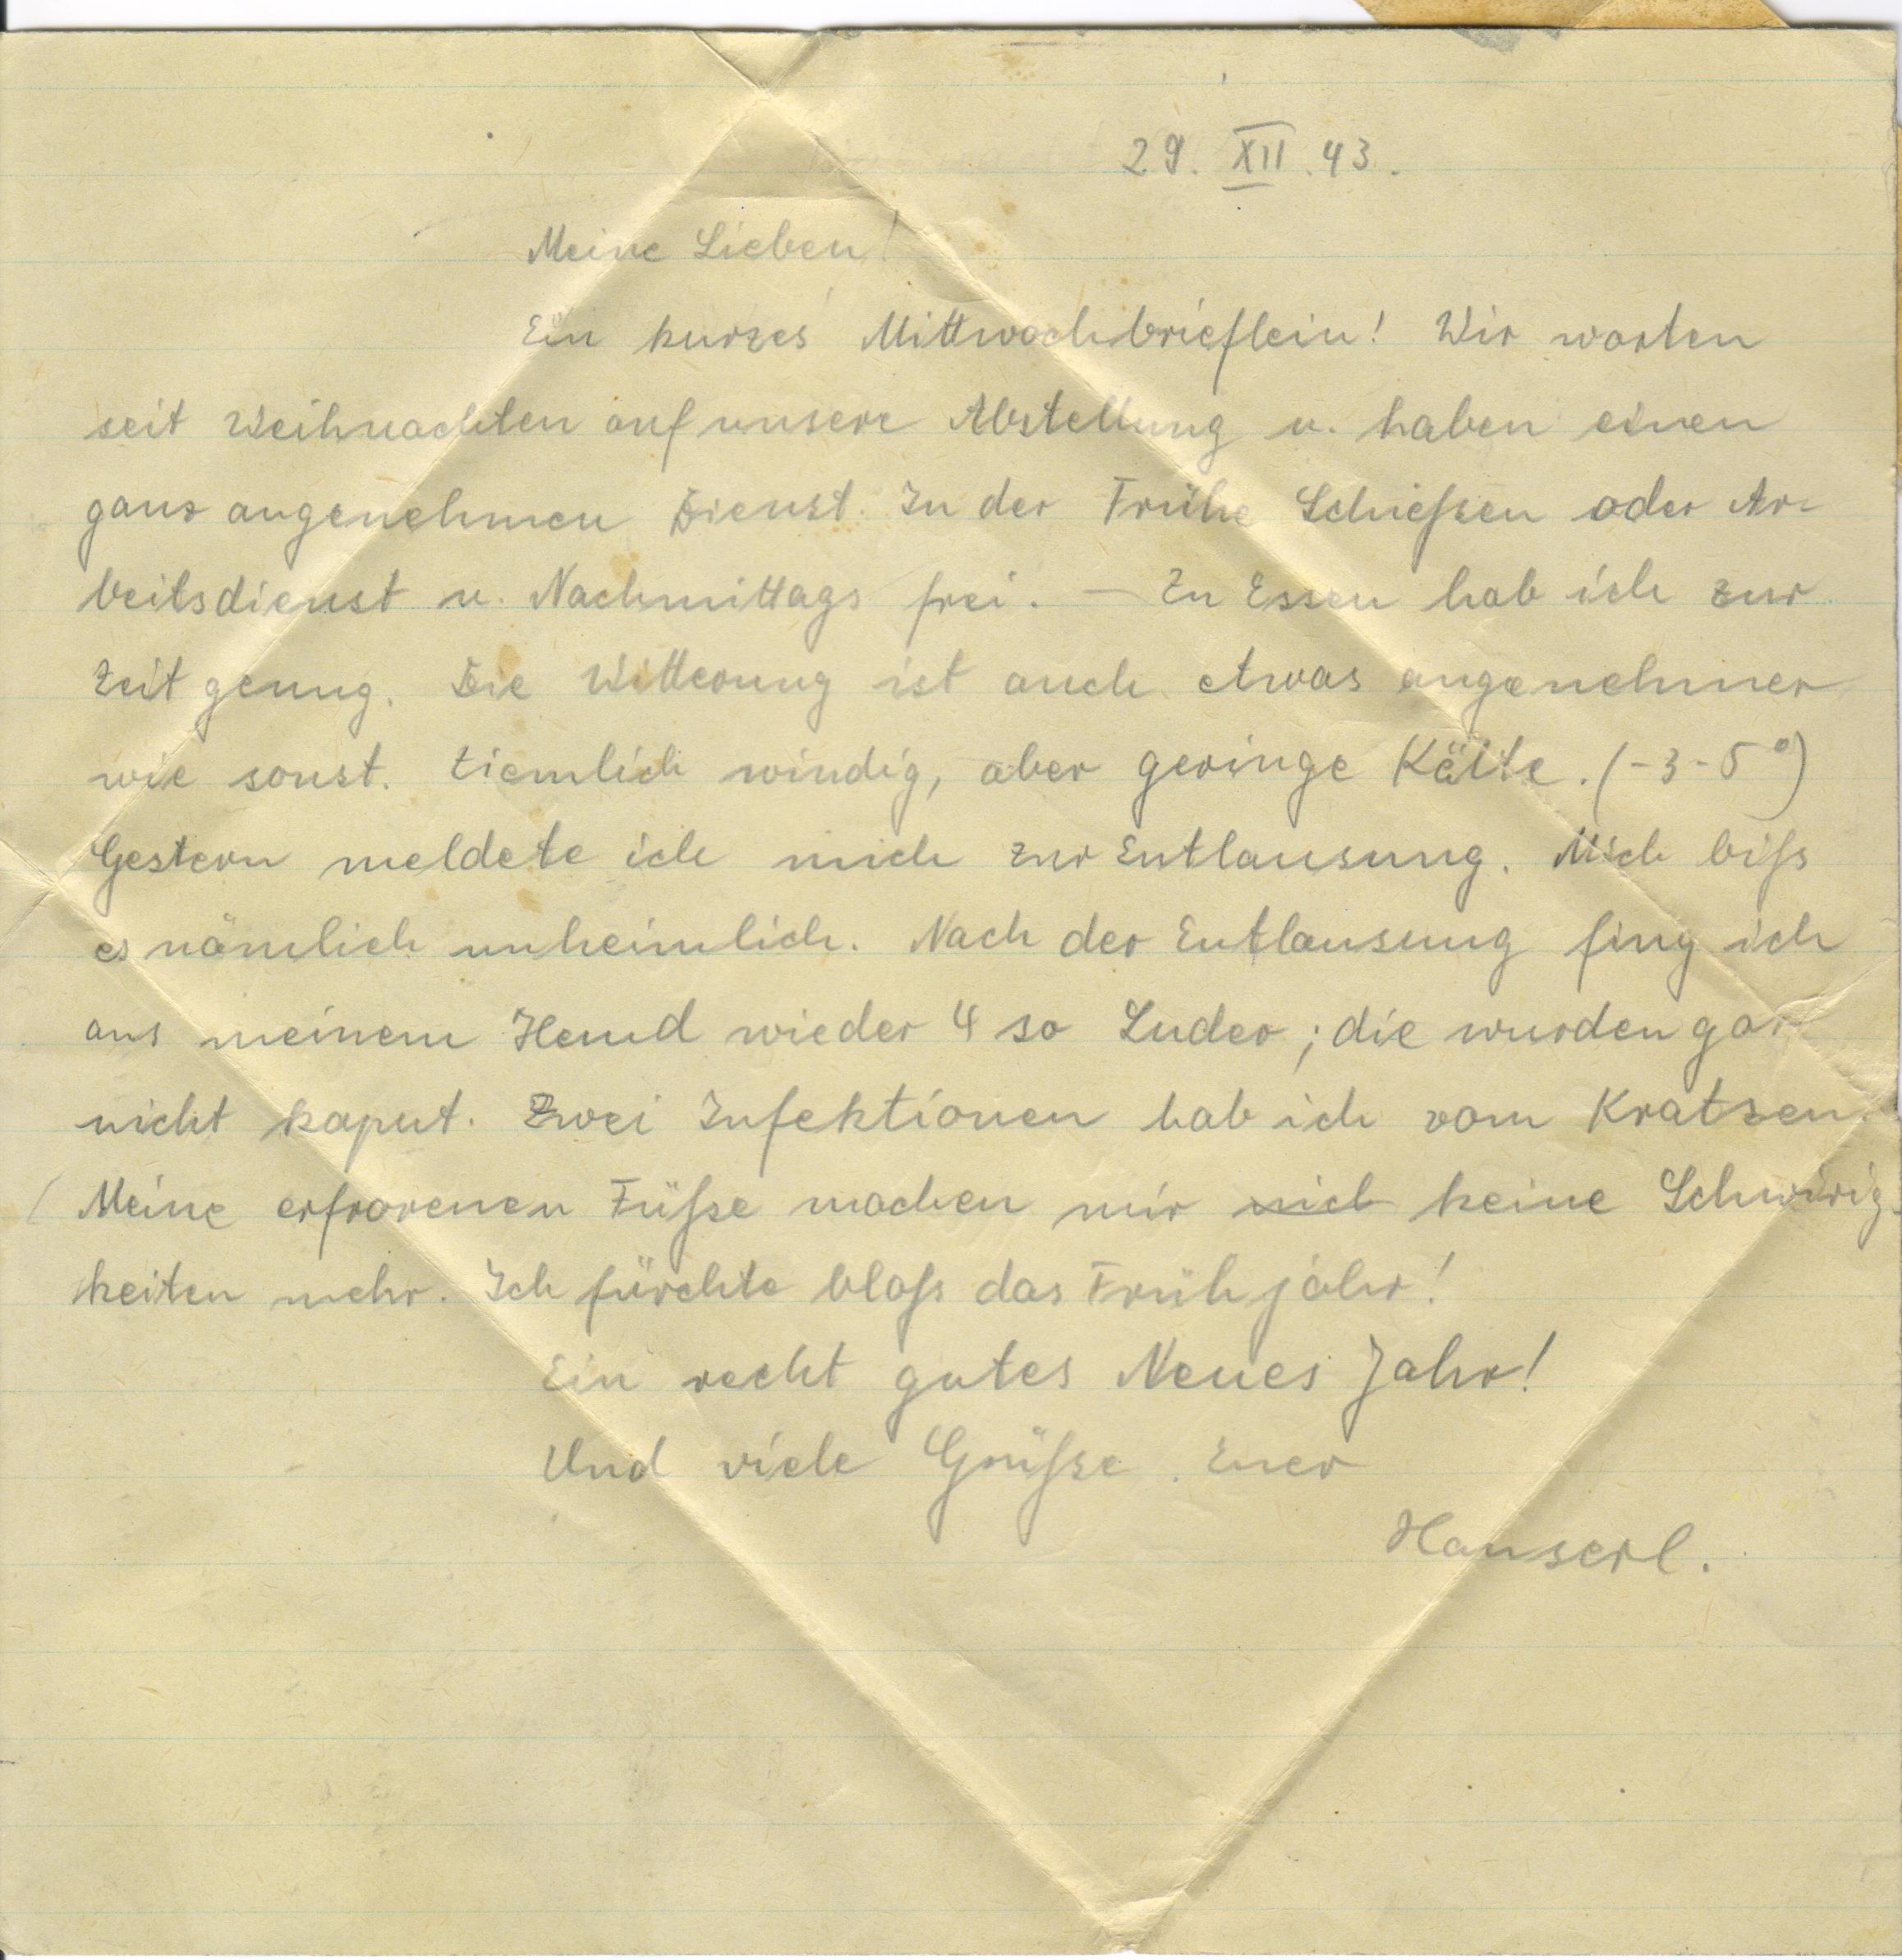 29. XII. 43.
Meine Lieben!
Ein kurzes Mittwochbrieflein! Wir warten
seit Weihnachten auf unsere Abstellung u. haben einen
ganz angenehmen Dienst. In der Frühe Schießen oder Ar-
beitsdienst u. Nachmittags frei. – Zu Essen hab ich zur
Zeit genug. Die Witterung ist auch etwas angenehmer
wie sonst. Ziemlich windig, aber geringe Kälte. (-3-5°)
Gestern meldete ich mich zur Entlausung. Mich biß
es nämlich unheimlich. Nach der Entlausung fing ich
aus meinem Hemd wieder 4 so Luder; die wurden gar
nicht kaput. Zwei Infektionen hab ich vom Kratzen.
Meine erfrorenen Füße machen mir nich keine Schwirig-
keiten mehr. Ich fürchte bloß das Frühjahr!
Ein recht gutes Neues Jahr!
Und viele Grüße. Euer
Hanserl.